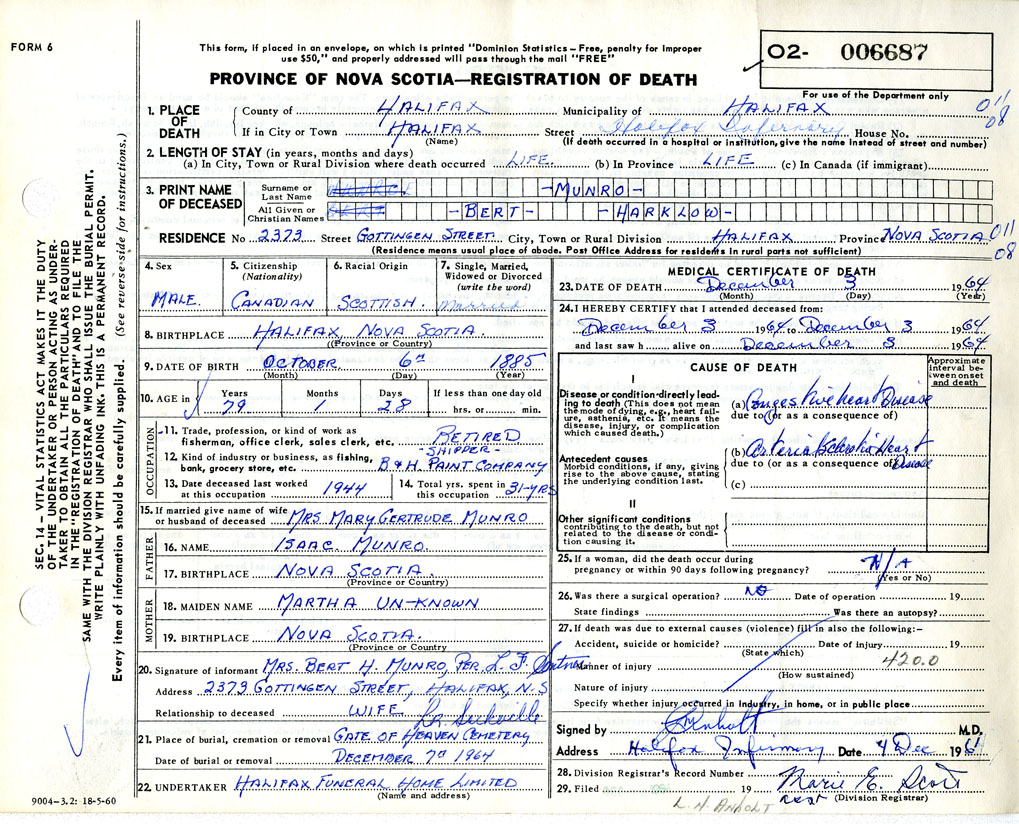 FORM 6
This form, if placed in an envelope, on which is printed "Dominion Statistics – Free, penalty for improper
use $50," and properly addressed will pass through the mail "FREE"
PROVINCE OF NOVA SCOTIA—REGISTRATION OF DEATH
02- 006687
For use of the Department only
011
08
1. PLACE OF DEATH
County of HALIFAX Municipality of HALIFAX
If in City or Town HALIFAX Street Halifax Infirmary House No.
(Name) (If death occurred in a hospital or institution, give the name instead of street and number)
2. LENGTH OF STAY (in years, months and days)
(a) In City, Town or Rural Division where death occurred LIFE. (b) In Province LIFE (c) In Canada (if immigrant)
3. PRINT NAME OF DECEASED
Surname or Last Name -MUNRO-
All Given or Christian Names -BERT- -HARKLOW-
RESIDENCE No 2373 Street GOTTINGEN STREET. City, Town or Rural Division HALIFAX Province NOVA SCOTIA 011
08
(Residence means usual place of abode. Post Office Address for residents in rural parts not sufficient)
4. Sex
MALE.
5. Citizenship (Nationality)
CANADIAN
6. Racial Origin
SCOTTISH.
7. Single, Married, Widowed or Divorced (write the word)
Married
8. BIRTHPLACE HALIFAX, NOVA SCOTIA.
(Province or Country)
9. DATE OF BIRTH OCTOBER 6TH 1885
(Month) (Day) (Year)
10. AGE in Years Months Days If less than one day old
79 1 28 hrs. or min.
OCCUPATION
11. Trade, profession, or kind of work as fisherman, office clerk, sales clerk, etc. RETIRED
-SHIPPER-
12. Kind of industry or business, as fishing, bank, grocery store, etc. B & H. PAINT COMPANY
13. Date deceased last worked at this occupation 1944
14. Total yrs. spent in this occupation 31-YRS
15. If married give name of wife or husband of deceased MRS. MARY GERTRUDE MUNRO
FATHER
16. NAME ISAAC. MUNRO.
17. BIRTHPLACE NOVA SCOTIA.
(Province or Country)
MOTHER
18. MAIDEN NAME MARTHA UN-KNOWN
19. BIRTHPLACE NOVA SCOTIA.
(Province or Country
20. Signature of informant MRS. BERT H. MUNRO, PER. L. F.
Address 2373 GOTTINGEN STREET, HALIFAX, N.S
Relationship to deceased WIFE
21. Place of burial, cremation or removal GATE OF HEAVEN CEMETERY
Date of burial or removal DECEMBER 7TH 1964
22. UNDERTAKER HALIFAX FUNERAL HOME LIMITED
(Name and address)
9004-3.2: 18-5-60
MEDICAL CERTIFICATE OF DEATH
23. DATE OF DEATH December 3 1964
(Month) (Day) (Year)
24. I HEREBY CERTIFY that I attended deceased from:
December 3 1964 to December 3 1964
and last saw h alive on December 3 1964
CAUSE OF DEATH
Approximate interval between onset and death
I
Disease or condition directly leading to death (This does not mean the mode of dying, e.g., heart failure, asthenia, etc. It means the disease, injury, or complication which caused death.)
(a) Congestive heart Disease
due to (or as a consequence of)
Antecedent causes
Morbid conditions, if any, giving rise to the above cause, stating the underlying condition last.
(b) Arteriosclerotic Heart Disease
due to (or as a consequence of)
(c)
II
Other significant conditions
contributing to the death, but not related to the disease or condition causing it.
25. If a woman, did the death occur during
pregnancy or within 90 days following pregnancy? N/A
(Yes or No)
26. Was there a surgical operation? No Date of operation 19
State findings Was there an autopsy?
27. If death was due to external causes (violence) fill in also the following:–
Accident, suicide or homicide? Date of injury 19
(State which) 420.0
Manner of injury
(How sustained)
Nature of injury
Specify whether injury occurred in industry, in home, or in public place
Signed by Anholt M.D.
Address Halifax Infirmary Date 4 Dec 1964
28. Division Registrar's Record Number
29. Filed 19 Marie E. Scott
(Division Registrar)
L. H. ANHOLT
SEC. 14 – VITAL STATISTICS ACT MAKES IT THE DUTY
OF THE UNDERTAKER OR PERSON ACTING AS UNDER-
TAKER TO OBTAIN ALL THE PARTICULARS REQUIRED
IN THE "REGISTRATION OF DEATH" AND TO FILE THE
SAME WITH THE DIVISION REGISTRAR WHO SHALL ISSUE THE BURIAL PERMIT.
WRITE PLAINLY WITH UNFADING INK. THIS IS A PERMANENT RECORD.
Every item of information should be carefully supplied. (See reverse side for instructions.)